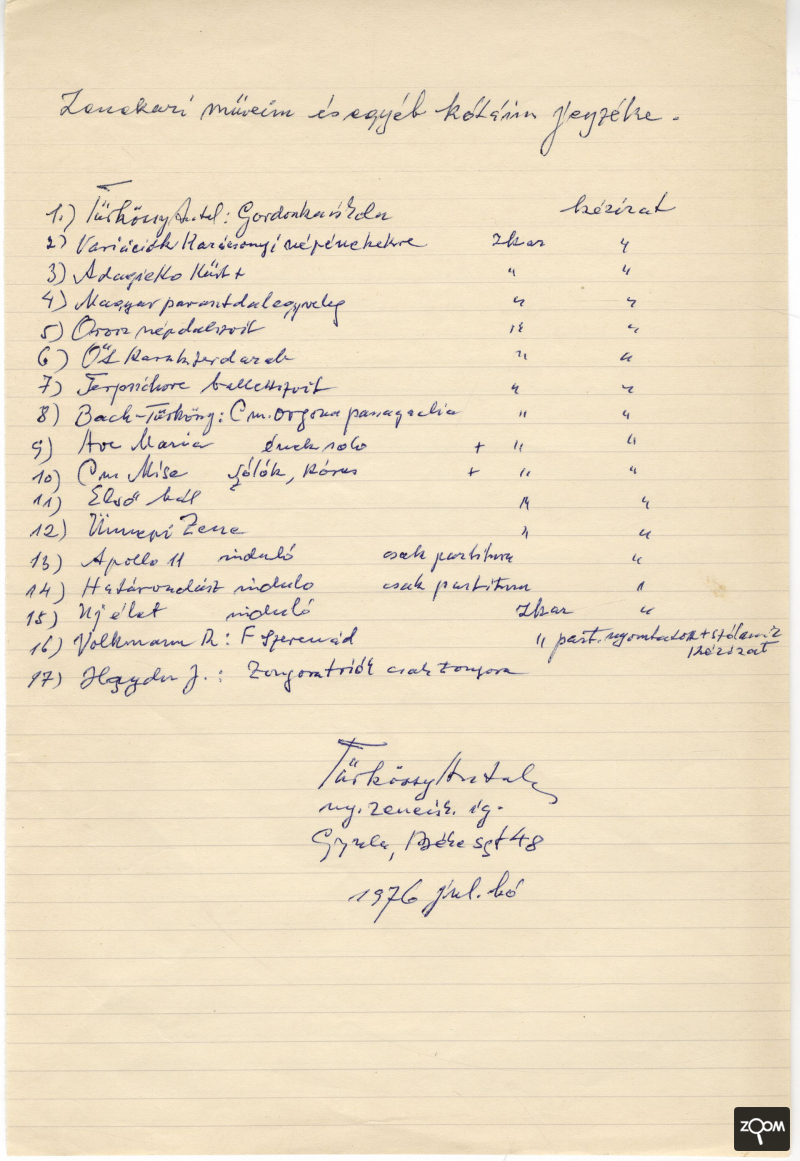 Zenekari műveim és egyéb kótáim jegyzéke.
kézirat
1.) Türkössy Antal: Gordonkaiskola
2) Variációk Karácsonyi népénekekre zkar "
3) Adagietto Kürt + " "
4) Magyar parasztdalegyveleg " "
5) Orosz népdalszvit " "
6) Öt karakterdarab " "
7) Terpsichore ballettszvit " "
8) Bach-Türkössy: Cm. orgona passacaglia " "
9) Ave Maria ének solo + " "
10) Cm Mise szólók, kórus + " "
11) Első bál " "
12) Ünnepi Zene " "
13) Apollo 11 induló csak partitura "
14) Határondász induló csak partitura "
15) Uj élet induló zkar "
16) Volkmann R: F Szerenád " part. nyomtatott + szólamok
kézirat
17) Haydn J.: Zongoratriók csak zongora
Türkössy Antal
ny. zeneisk. ig.
Gyula, Béke sgt 48
1976 jul. hó
ZOOM